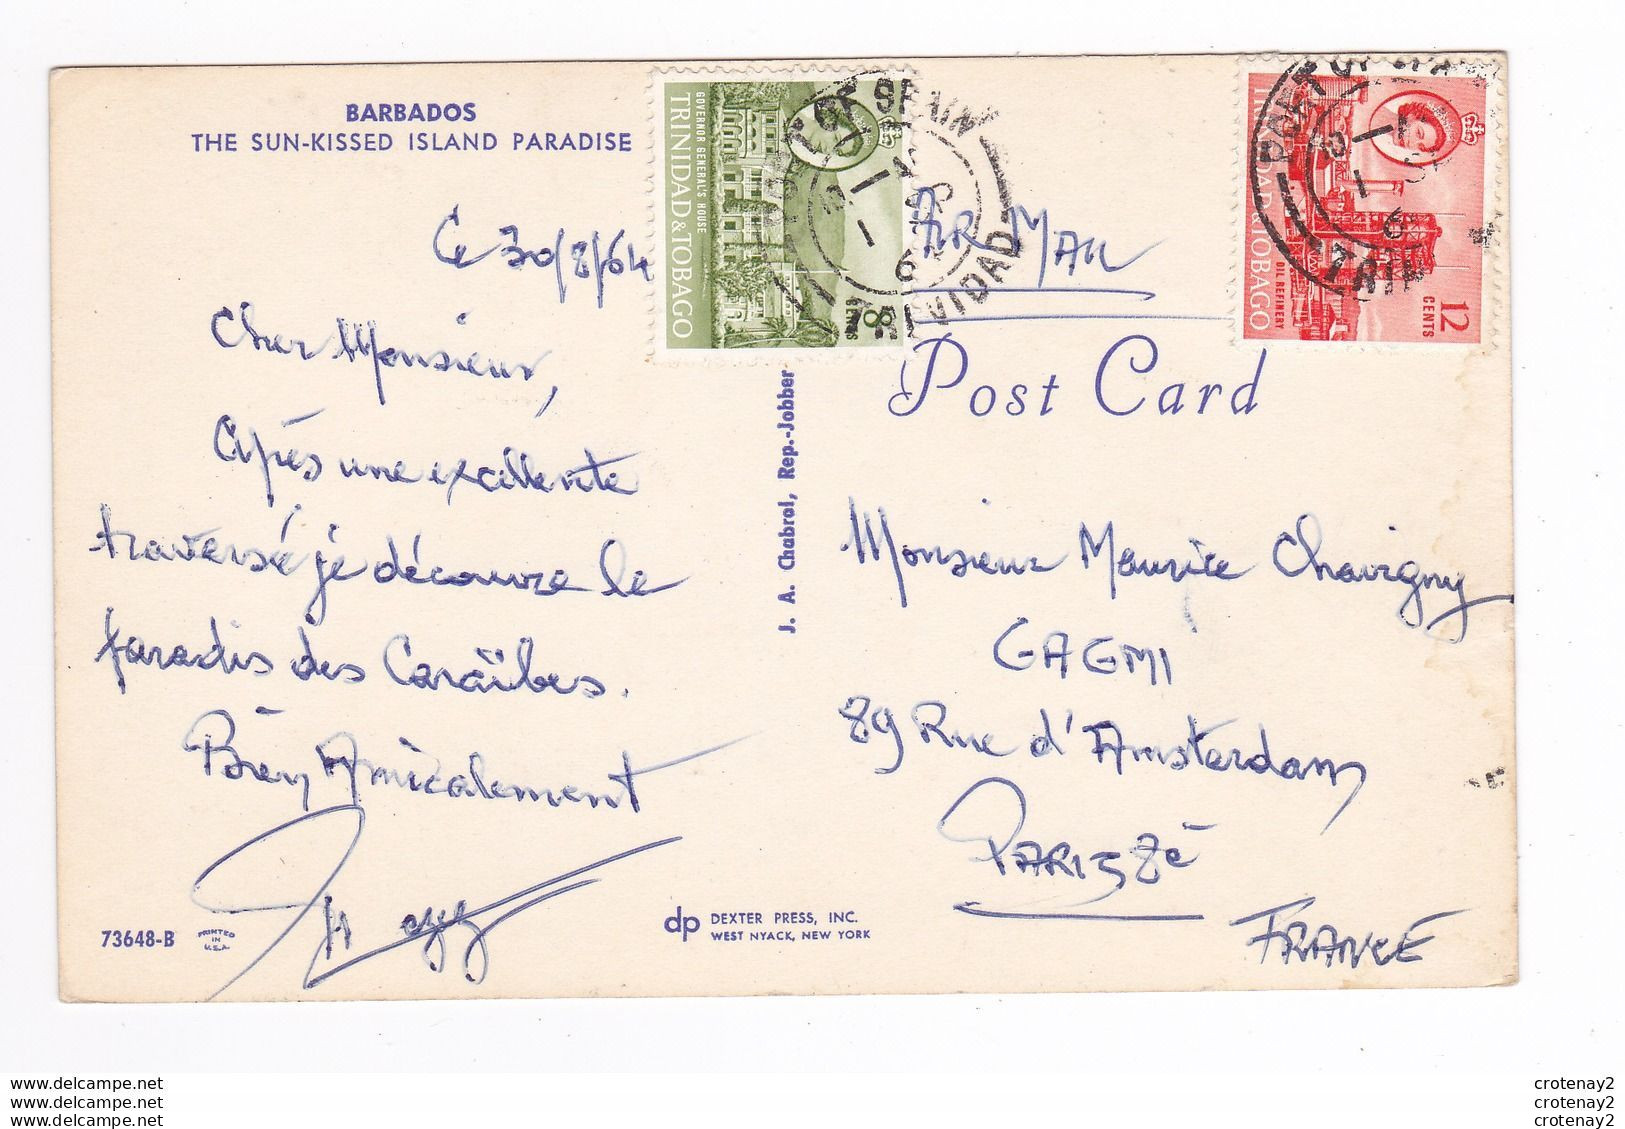 BARBADOS
THE SUN-KISSED ISLAND PARADISE
Ce 30/8/64
Cher Monsieur,
Après une excellente
traversé je découvre le
paradis des Caraïbes.
Bien Amicalement
73648-B
PRINTED
IN
U.S.A.
dp DEXTER PRESS, INC.
WEST NYACK, NEW YORK
J. A. Chabrol, Rep.-Jobber
GOVERNOR GENERAL'S HOUSE
TRINIDAD & TOBAGO
8
CENTS
PORT OF SPAIN
TRINIDAD
AIR MAIL
PORT OF SPAIN
OIL REFINERY
TRINIDAD & TOBAGO
12
CENTS
Post Card
Monsieur Maurice Chavigny
GAGMI
89 Rue d'Amsterdam
PARIS 8è
FRANCE
www.delcampe.net
www.delcampe.net
www.delcampe.net
crotenay2
crotenay2
crotenay2